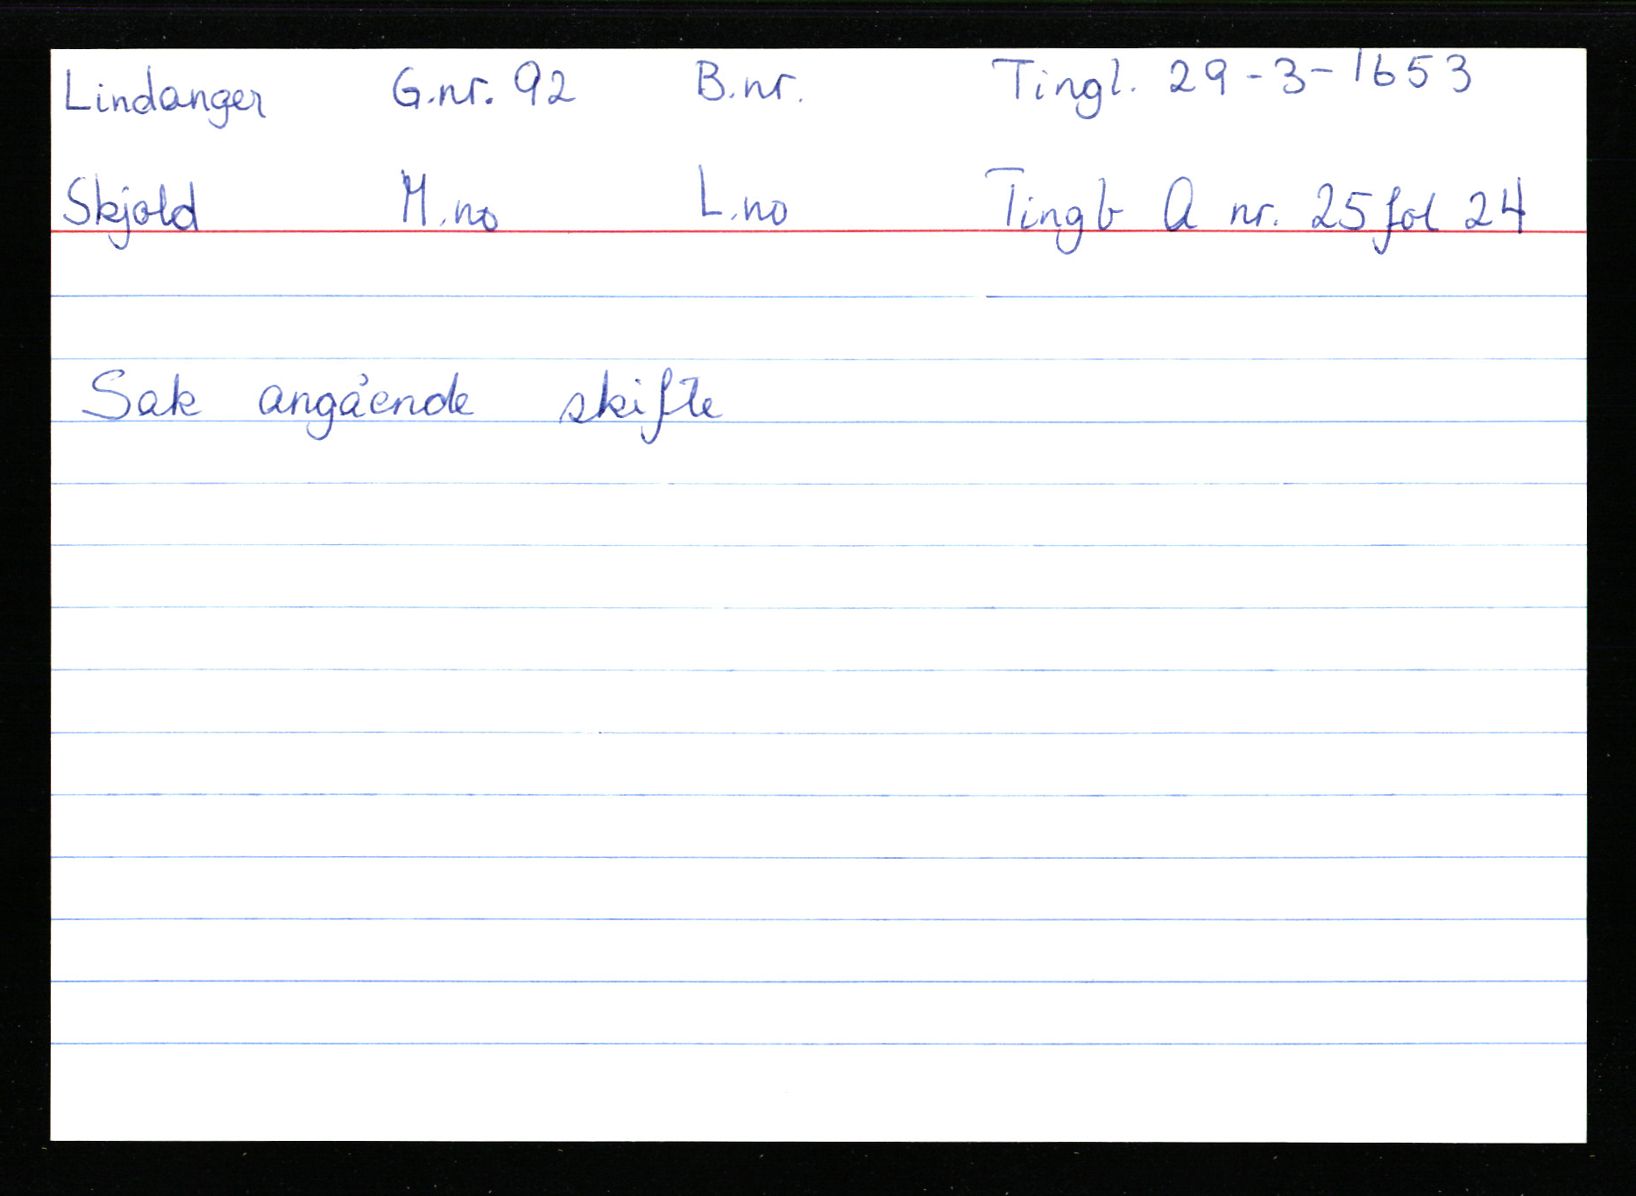 Lindanger G.nr. 92 B.nr. Tingl. 29-3-1653
Skjold M.no L.no Tingb A nr. 25 fol 24
Sak angående skifte